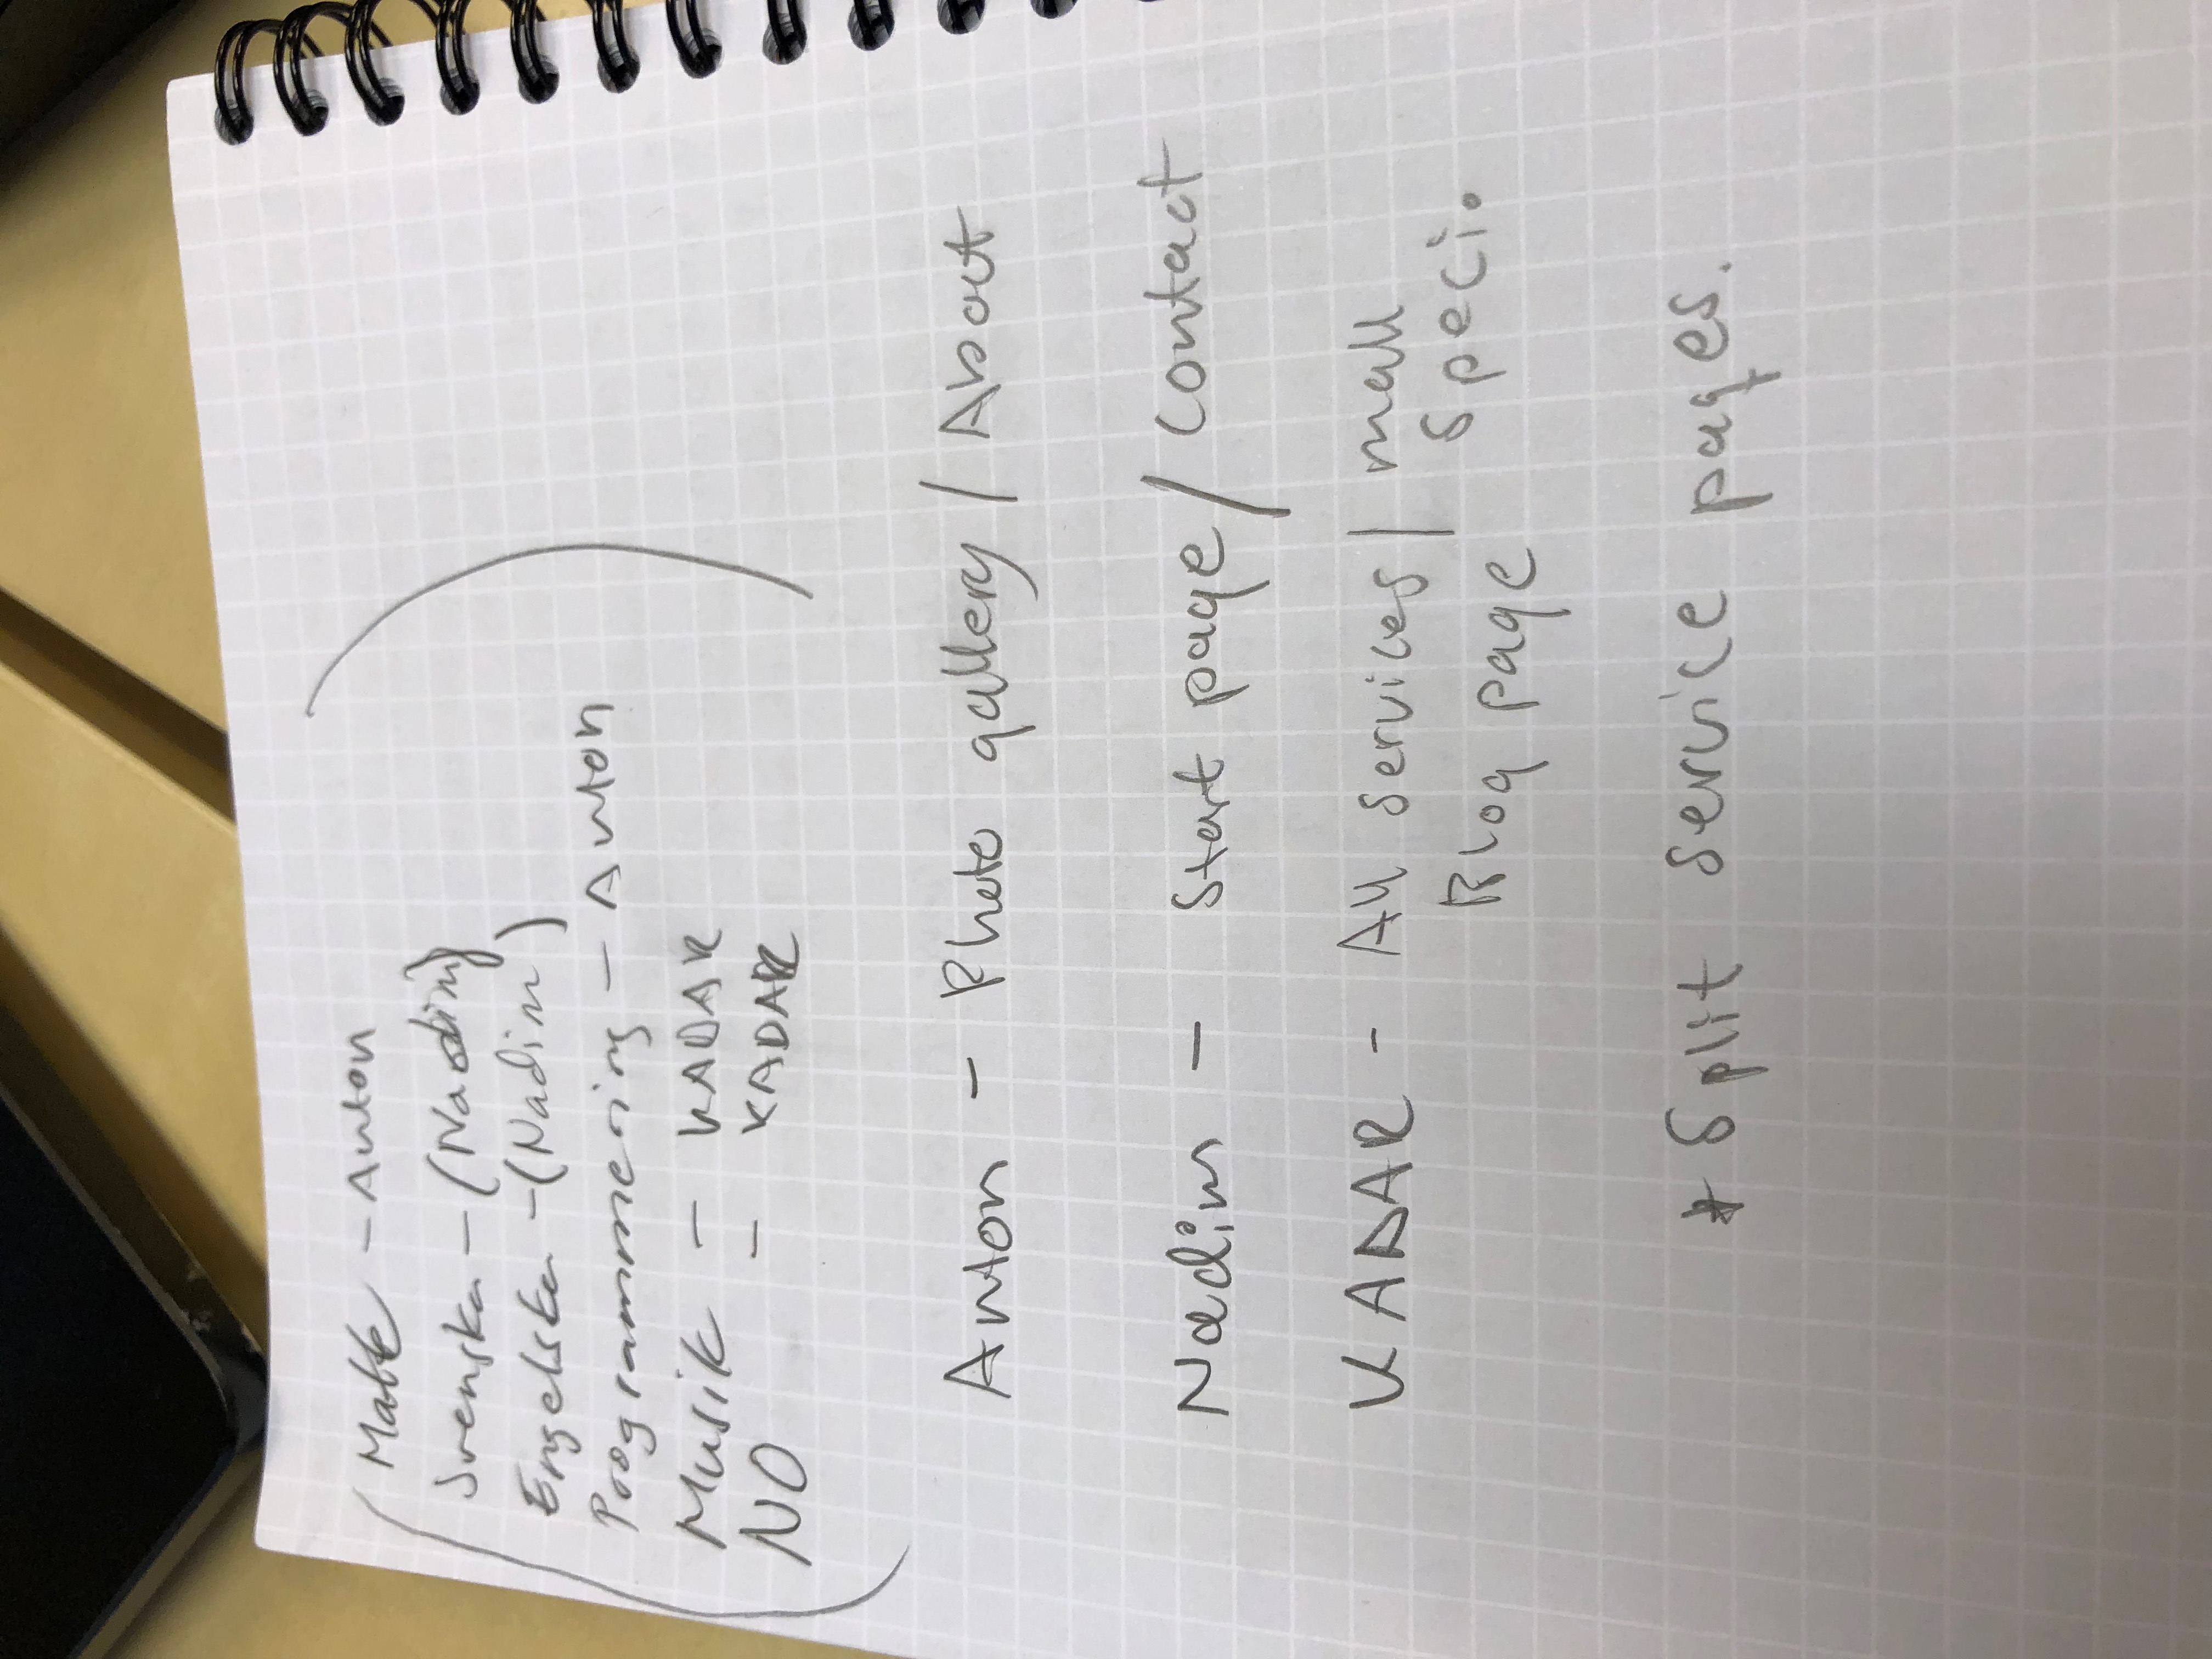 Matte - Anton
Svenska - (Nadim)
Engelska - (Nadim)
Programmering - Anton
Musik - KADAR
NO - KADAR
Anton - Photo gallery / About
Nadim - Start page / Contact
KADAR - All services / mall
Blog page speci.
* Split service pages.